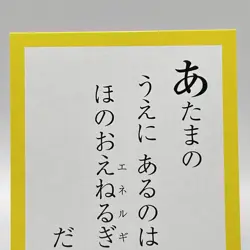 あたまの
うえに あるのは
ほのおえねるぎ
エネルギ
だ